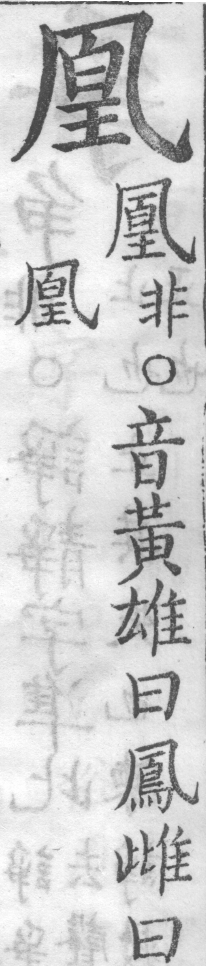 凰
凰非○音黃雄曰鳳雌曰
凰